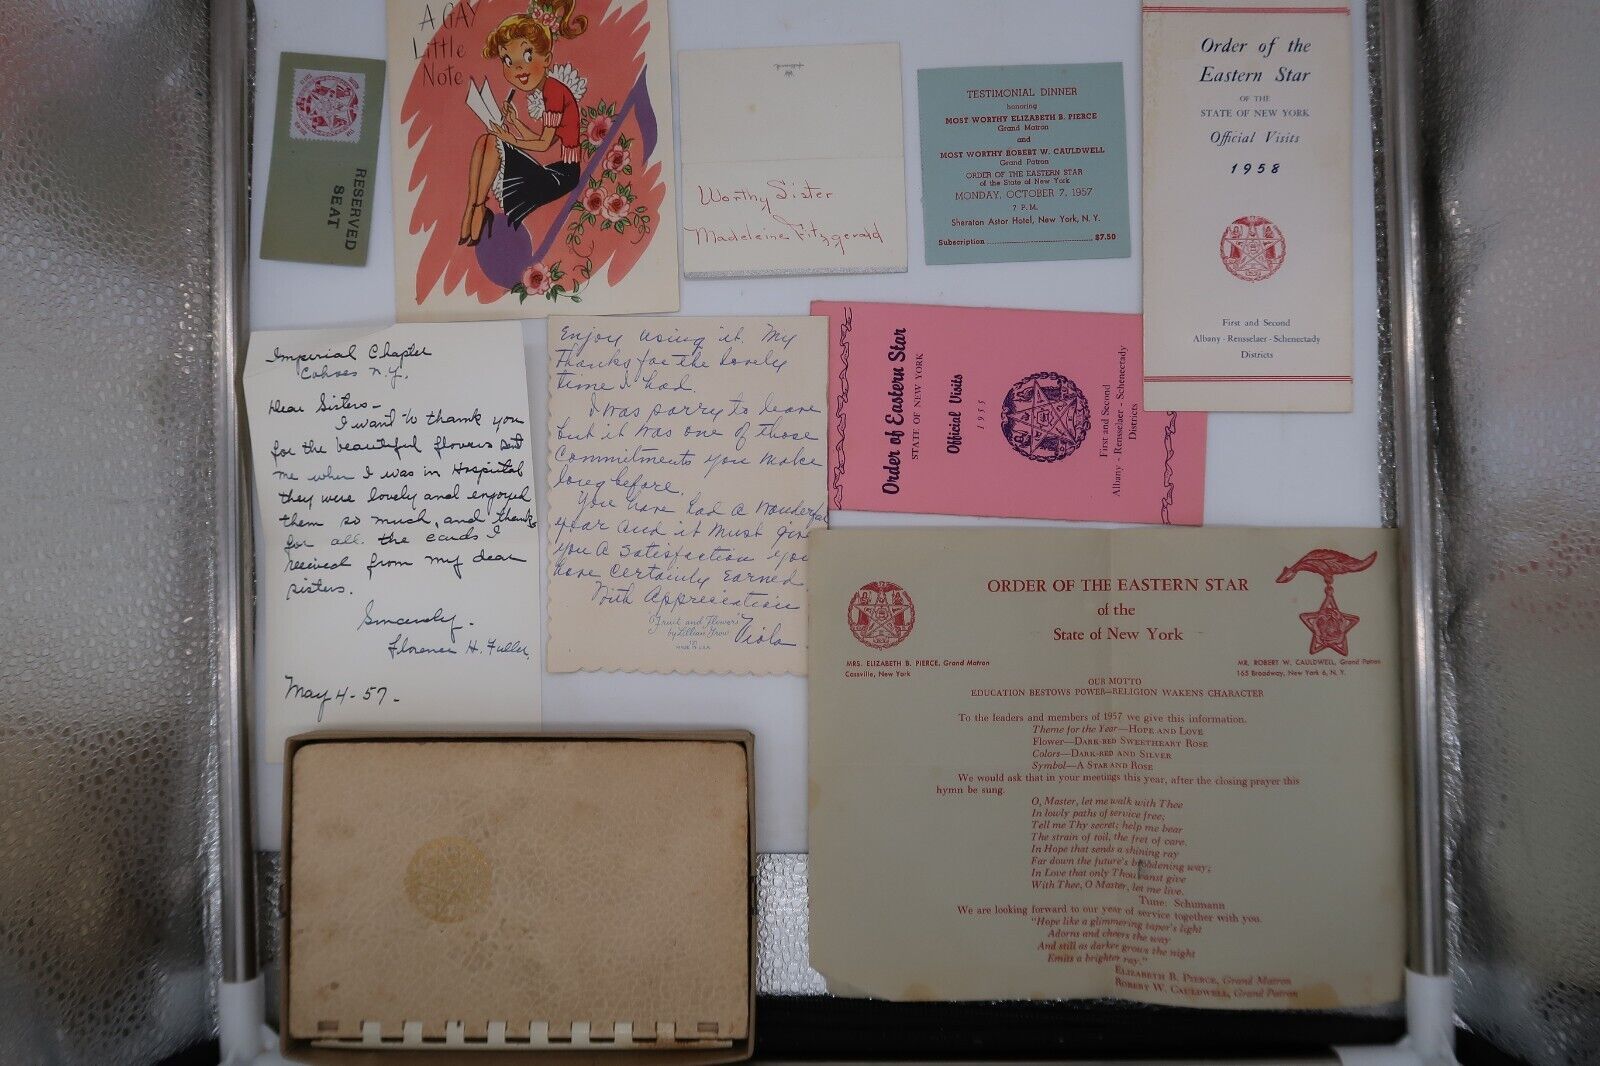 RESERVED
SEAT
A GAY
Little
Note
Hallmark
Worthy Sister
Madeleine Fitzgerald
TESTIMONIAL DINNER
honoring
MOST WORTHY ELIZABETH B. PIERCE
Grand Matron
and
MOST WORTHY ROBERT W. CAULDWELL
Grand Patron
ORDER OF THE EASTERN STAR
of the State of New York
MONDAY, OCTOBER 7, 1957
7 P. M.
Sheraton Astor Hotel, New York, N. Y.
Subscription ........ $7.50
Order of the
Eastern Star
OF THE
STATE OF NEW YORK
Official Visits
1958
First and Second
Albany - Rensselaer - Schenectady
Districts
Imperial Chapter
Cohoes N.Y.
Dear Sisters -
I want to thank you
for the beautiful flowers sent
me when I was in Hospital
they were lovely and enjoyed
them so much, and thanks
for all the cards I
received from my dear
sisters.
Sincerely -
Florence H. Fuller.
May 4 - 57 -
Enjoy using it. My
thanks for the lovely
time I had.
I was sorry to leave
but it was one of those
commitments you make
long before.
You have had a wonderful
year and it must give
you a satisfaction you
have certainly earned.
With Appreciation
Viola
Fruit and Flowers
by Lillian Grow
MADE IN U.S.A.
Order of Eastern Star
STATE OF NEW YORK
Official Visits
1955
First and Second
Albany - Rensselaer - Schenectady
Districts
ORDER OF THE EASTERN STAR
of the
State of New York
MRS. ELIZABETH B. PIERCE, Grand Matron
Cassville, New York
MR. ROBERT W. CAULDWELL, Grand Patron
165 Broadway, New York 6, N. Y.
OUR MOTTO
EDUCATION BESTOWS POWER—RELIGION WAKENS CHARACTER
To the leaders and members of 1957 we give this information.
Theme for the Year—HOPE AND LOVE
Flower—DARK-RED SWEETHEART ROSE
Colors—DARK-RED AND SILVER
Symbol—A STAR AND ROSE
We would ask that in your meetings this year, after the closing prayer this
hymn be sung.
O, Master, let me walk with Thee
In lowly paths of service free;
Tell me Thy secret; help me bear
The strain of toil, the fret of care.
In Hope that sends a shining ray
Far down the future's broadening way;
In Love that only Thou canst give
With Thee, O Master, let me live.
Tune: Schumann
We are looking forward to our year of service together with you.
"Hope like a glimmering taper's light
Adorns and cheers the way
And still as darker grows the night
Emits a brighter ray."
ELIZABETH B. PIERCE, Grand Matron
ROBERT W. CAULDWELL, Grand Patron